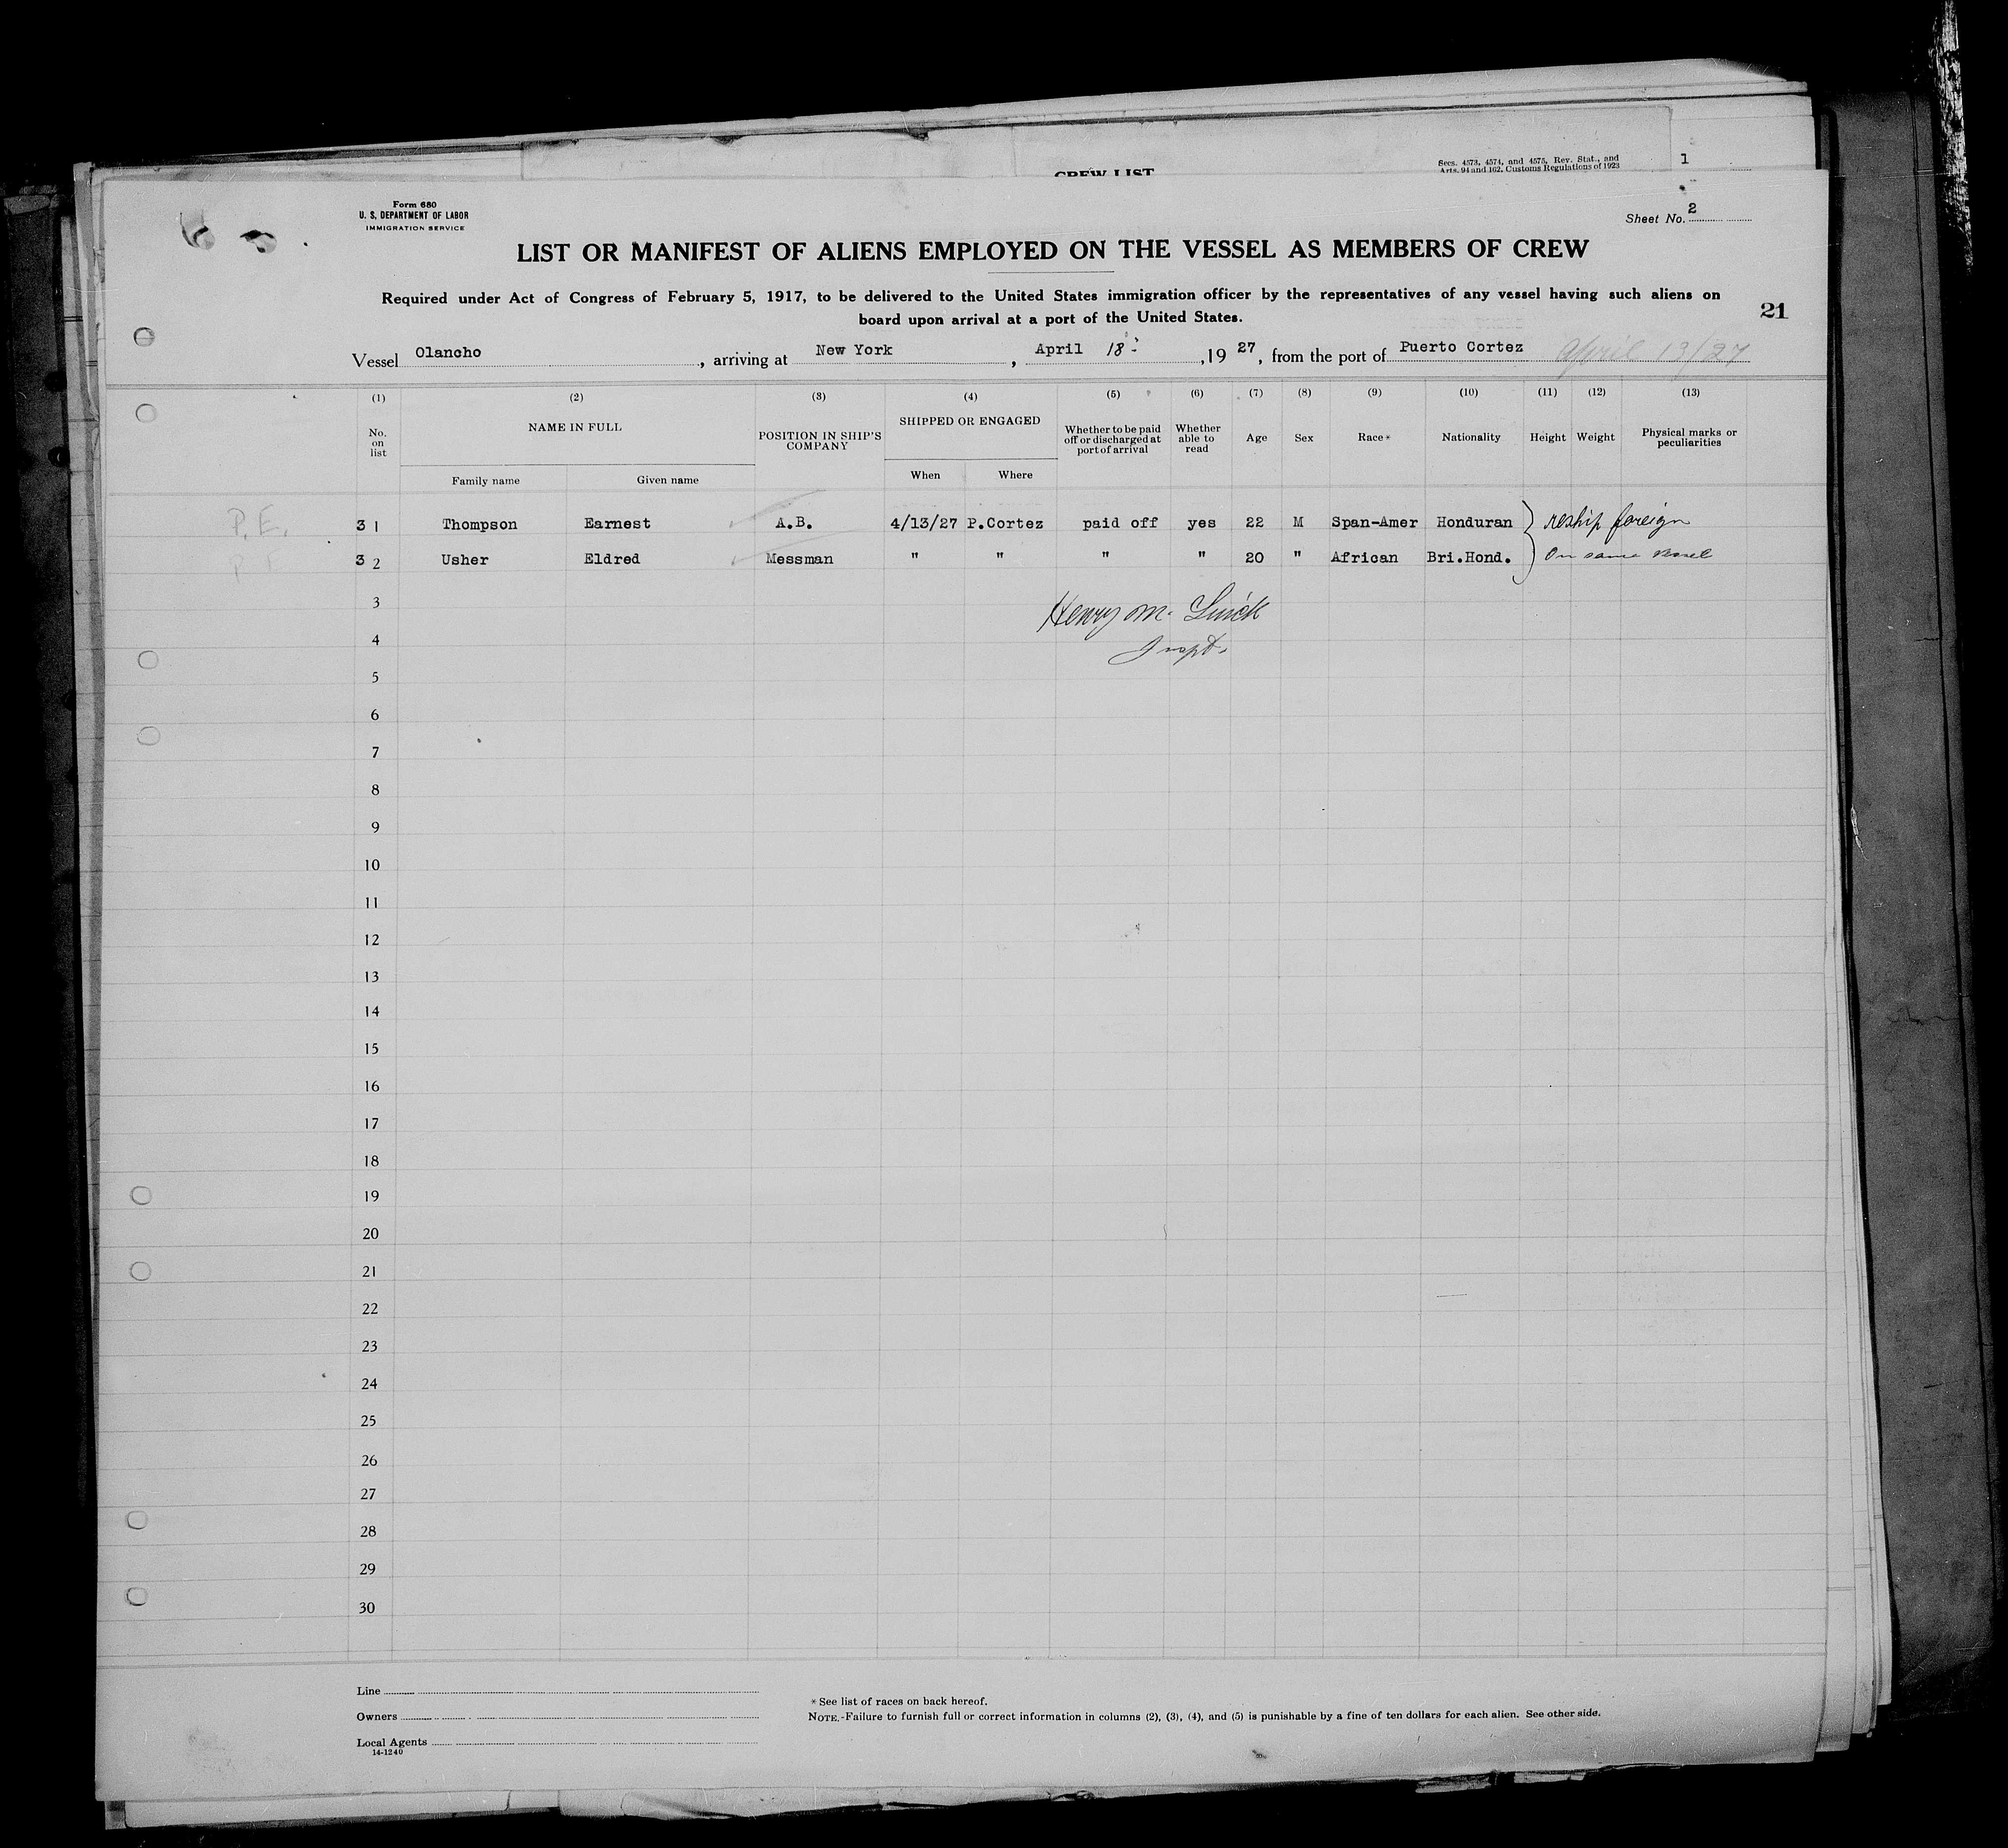 CREW LIST
Secs. 4573, 4574, and 4575, Rev. Stat., and
Arts. 94 and 162, Customs Regulations of 1923
1
Form 680
U. S. DEPARTMENT OF LABOR
IMMIGRATION SERVICE
Sheet No. 2
LIST OR MANIFEST OF ALIENS EMPLOYED ON THE VESSEL AS MEMBERS OF CREW
Required under Act of Congress of February 5, 1917, to be delivered to the United States immigration officer by the representatives of any vessel having such aliens on
board upon arrival at a port of the United States.
21
Vessel Olancho, arriving at New York, April 18, 1927, from the port of Puerto Cortez April 13/27
(1) (2) (3) (4) (5) (6) (7) (8) (9) (10) (11) (12) (13)
No. on list NAME IN FULL POSITION IN SHIP'S COMPANY SHIPPED OR ENGAGED Whether to be paid off or discharged at port of arrival Whether able to read Age Sex Race* Nationality Height Weight Physical marks or peculiarities
Family name Given name When Where
P.E. 3 1 Thompson Earnest A.B. 4/13/27 P.Cortez paid off yes 22 M Span-Amer Honduran reship foreign
3 2 Usher Eldred Messman " " " " 20 " African Bri.Hond. On same vessel
3 Henry M.
4 Inspt.
5
6
7
8
9
10
11
12
13
14
15
16
17
18
19
20
21
22
23
24
25
26
27
28
29
30
Line
Owners
Local Agents
14-1240
* See list of races on back hereof.
NOTE.-Failure to furnish full or correct information in columns (2), (3), (4), and (5) is punishable by a fine of ten dollars for each alien. See other side.